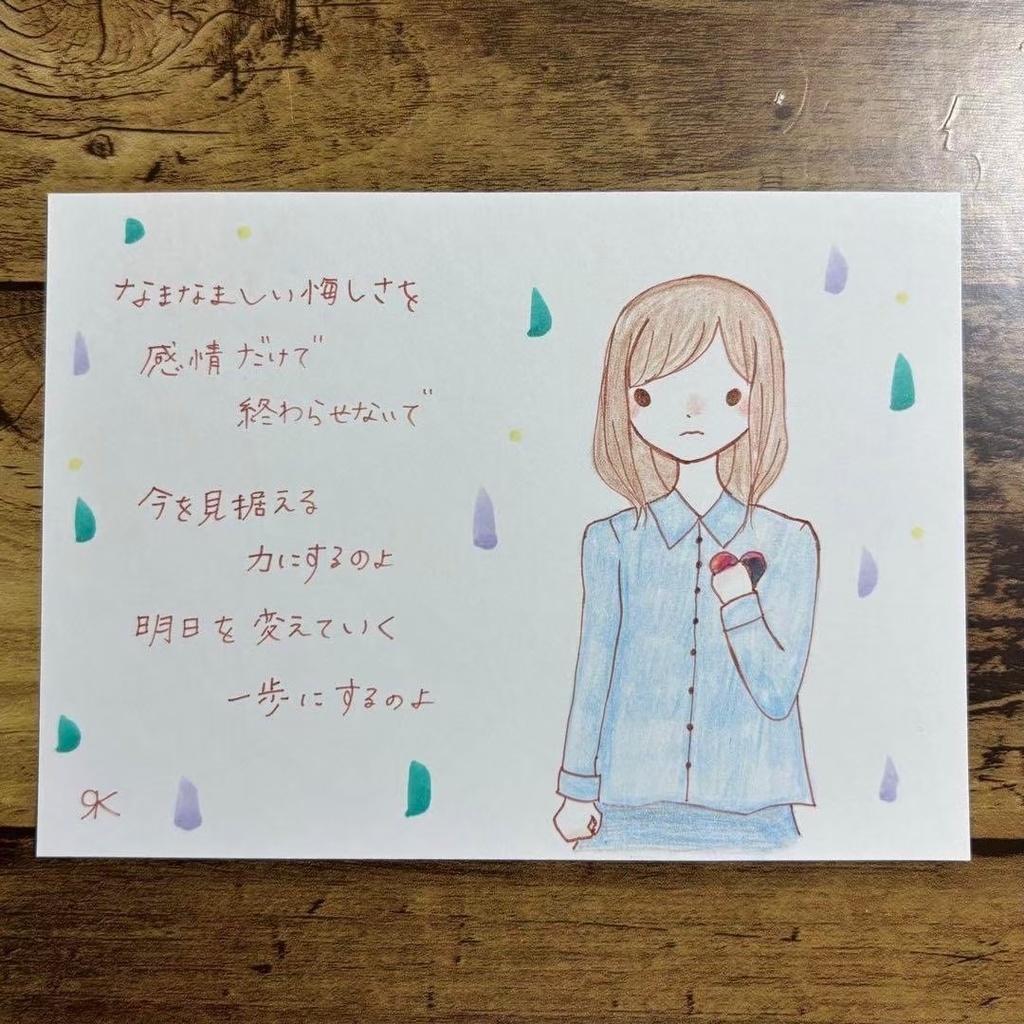 なまなましい悔しさを
感情だけで
終わらせないで
今を見据える
力にするのよ
明日を変えていく
一歩にするのよ